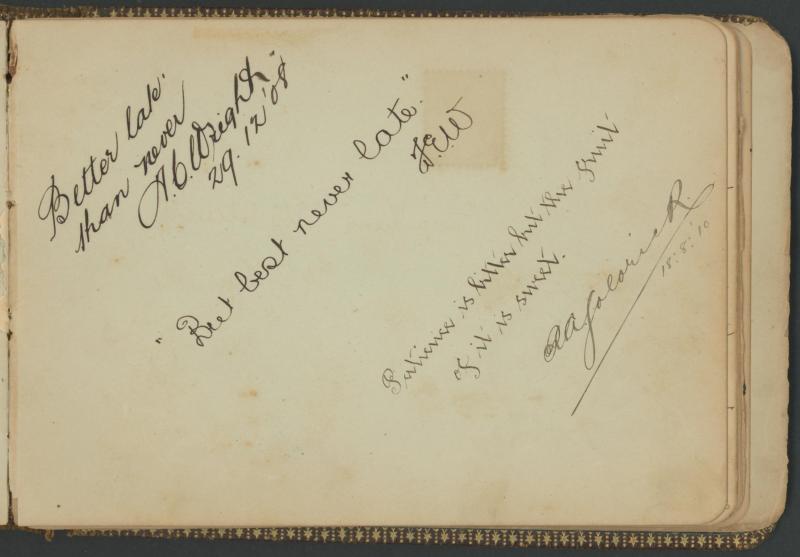 Better late
than never
A.C. Wright
29.12.'08
"But best never late."
F.E.W
Patience is bitter but the fruit
of it is sweet.
18:8:'10